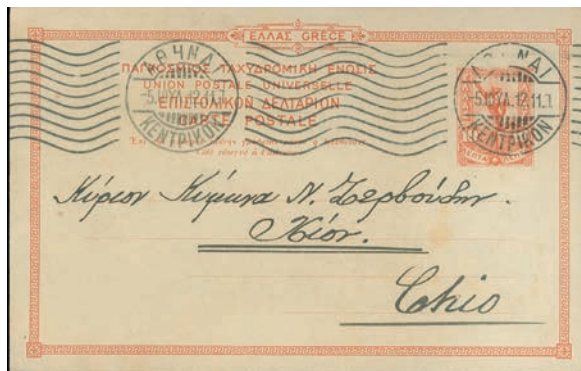 ΕΛΛΑΣ GRECE
ΠΑΓΚΟΣΜΙΟΣ ΤΑΧΥΔΡΟΜΙΚΗ ΕΝΩΣΙΣ
UNION POSTALE UNIVERSELLE
ΕΠΙΣΤΟΛΙΚΟΝ ΔΕΛΤΑΡΙΟΝ
CARTE POSTALE
ΑΘΗΝΑΙ
ΚΕΝΤΡΙΚΟΝ
ΑΘΗΝΑΙ
ΚΕΝΤΡΙΚΟΝ
Κύριον Ν. Ζερβούδην.
Χίον.
Chio